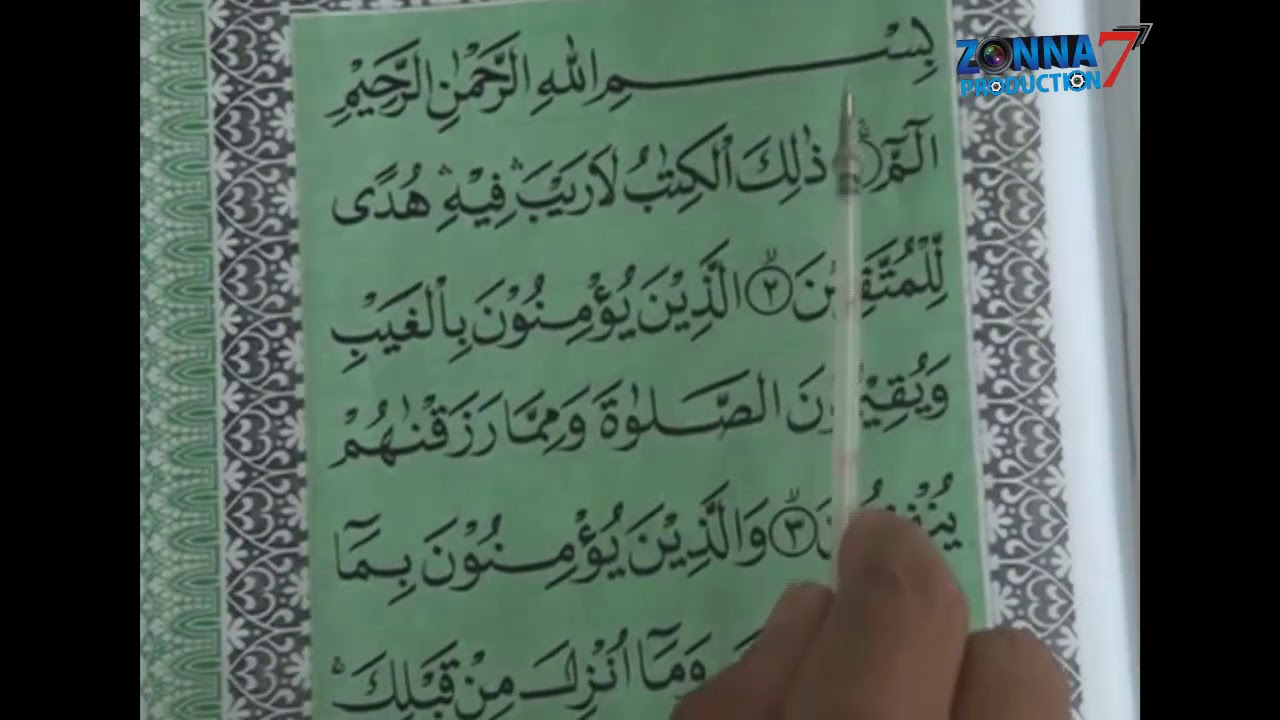 بِسْمِ اللهِ الرَّحْمٰنِ الرَّحِيْمِ
ZONNA 7
PRODUCTION
الٓمّٓ ذٰلِكَ الْكِتٰبُ لَارَيْبَ ۛ فِيْهِ ۛ هُدًى
لِّلْمُتَّقِيْنَ ۙ﴿٢﴾ الَّذِيْنَ يُؤْمِنُوْنَ بِالْغَيْبِ
وَيُقِيْمُوْنَ الصَّلٰوةَ وَمِمَّا رَزَقْنٰهُمْ
يُنْفِقُوْنَ ۙ﴿٣﴾ وَالَّذِيْنَ يُؤْمِنُوْنَ بِمَآ
وَمَآ اُنْزِلَ مِنْ قَبْلِكَ ۚ